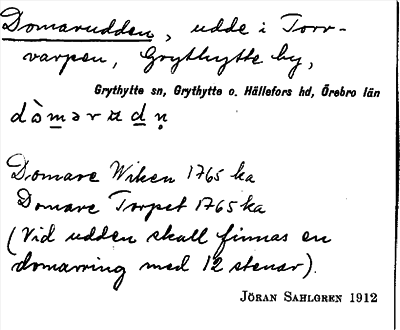 Domarudden, udde i Torr-
varpen, Grythytte by,
Grythytte sn, Grythytte o. Hällefors hd, Örebro län
dòmarudn
Domare Wiken 1765 ka
Domare Torpet 1765 ka
(Vid udden skall finnas en
domarring med 12 stenar).
JÖRAN SAHLGREN 1912